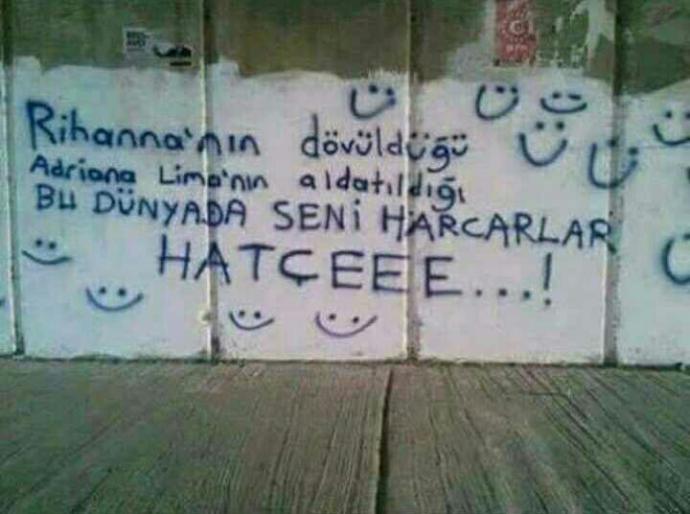 Rihanna'nın dövüldüğü
Adriana Lima'nın aldatıldığı
BU DÜNYADA SENİ HARCARLAR
HATÇEEE...!